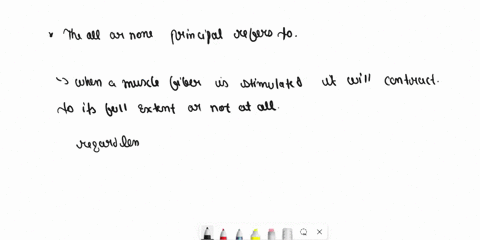 * The all or none principal refers to.
↳ when a muscle fiber is stimulated it will contract
to its full extent or not at all.
regardless